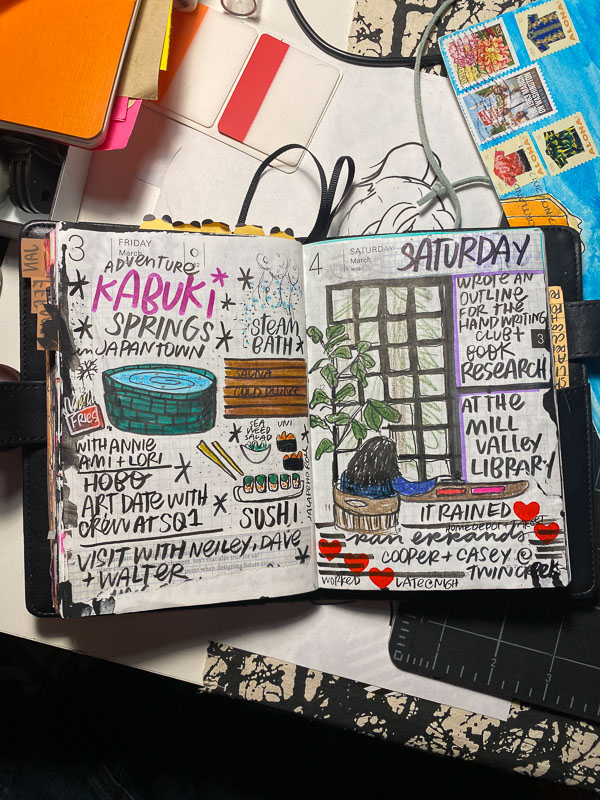 3
FRIDAY
March
ADVENTURE
KABUKI
SPRINGS
in JAPANTOWN
STEAM
BATH
SAUNA
COLD PLUNGE
SEA
WEED
SALAD
UNI
SUSHI
WITH ANNIE
AMI + LORI
HOBO
ART DATE WITH
CREW AT SQ1
VISIT WITH NEILEY, DAVE
+ WALTER
4
SATURDAY
March
SATURDAY
WROTE AN
OUTLINE
FOR THE
HANDWRITING
CLUB +
BOOK
RESEARCH
AT THE
MILL
VALLEY
LIBRARY
IT RAINED
HOMEDEPOT + TARGET
ran errands
COOPER + CASEY @
TWIN CREEKS
WORKED
LATE
3
JAN
FEB
ALOHA
ALOHA
ALOHA
1
2
3